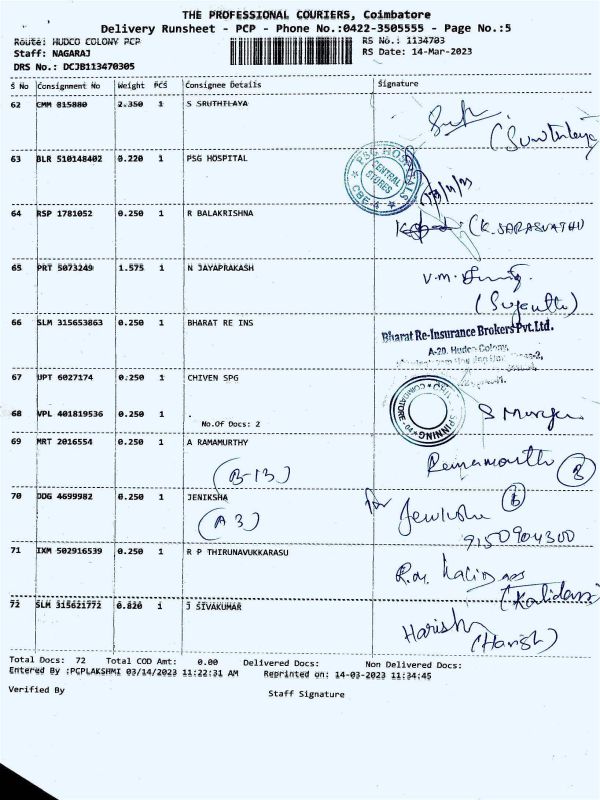 THE PROFESSIONAL COURIERS, Coimbatore
Delivery Runsheet - PCP - Phone No.:0422-3505555 - Page No.:5
Route: HUDCO COLONY PCP
RS No.: 1134703
Staff: NAGARAJ
RS Date: 14-Mar-2023
DRS No.: DCJB113470305
S No Consignment No Weight PCS Consignee Details Signature
62 CMM 815880 2.350 1 S SRUTHILAYA
63 BLR 510148402 0.220 1 PSG HOSPITAL
PSG HOSPITALS
CENTRAL STORES
CBE-4
64 RSP 1781052 0.250 1 R BALAKRISHNA
(K. SARASVATHI)
65 PRT 5073249 1.575 1 N JAYAPRAKASH
V.M.
(Suganthi)
66 SLM 315653863 0.250 1 BHARAT RE INS
Bharat Re-Insurance Brokers Pvt.Ltd.
A-20, Hudco Colony,
67 UPT 6027174 0.250 1 CHIVEN SPG
68 VPL 401819536 0.250 1 .
No.Of Docs: 2
SPINNING
COIMBATORE
S Murga
69 MRT 2016554 0.250 1 A RAMAMURTHY
(B-13)
Ramamourthi
70 DDG 4699982 0.250 1 JENIKSHA
(A 3)
for
9150904300
71 IXM 502916539 0.250 1 R P THIRUNAVUKKARASU
(Kalidass)
72 SLM 315621772 0.820 1 J SIVAKUMAR
Harish
(Harish)
Total Docs: 72 Total COD Amt: 0.00 Delivered Docs: Non Delivered Docs:
Entered By :PCPLAKSHMI 03/14/2023 11:22:31 AM Reprinted on: 14-03-2023 11:34:45
Verified By
Staff Signature